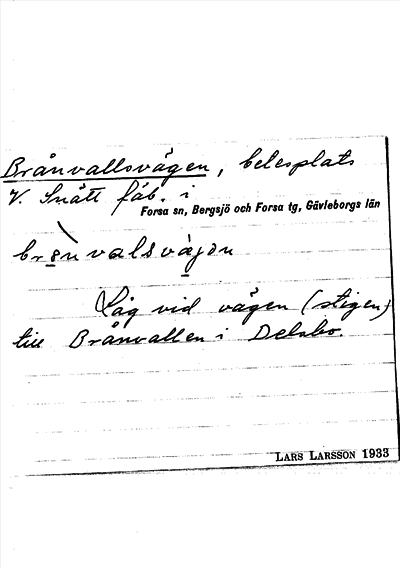 Brånvallsvägen, betesplats
V. Snått fäb. i
Forsa sn, Bergsjö och Forsa tg, Gävleborgs län
brònvalsvàjən
Låg vid vägen (stigen)
till Brånvallen i Delsbo.
LARS LARSSON 1933